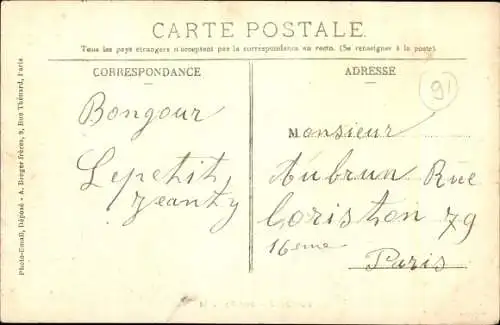 CARTE POSTALE
Tous les pays étrangers n'acceptent pas la correspondance au recto. (Se renseigner à la poste).
CORRESPONDANCE
Bongour
Lepetit
Jeanty
ADRESSE
91
Monsieur
Aubrun Rue
Loriston 79
16eme
Paris
Photo-Émail, Déposé - A. Breger frères, 9, Rue Thénard, Paris